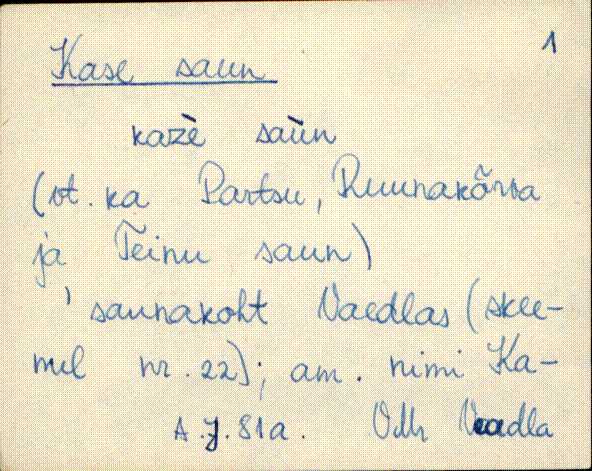 1
Kase saun
kazè saùn
(vt. ka Partsu, Ruunakõrva
ja Teinu saun)
saunakoht Vaedlas (skee-
mil nr. 22); am. nimi Ka-
A.J. 81a. Vdh Vaedla